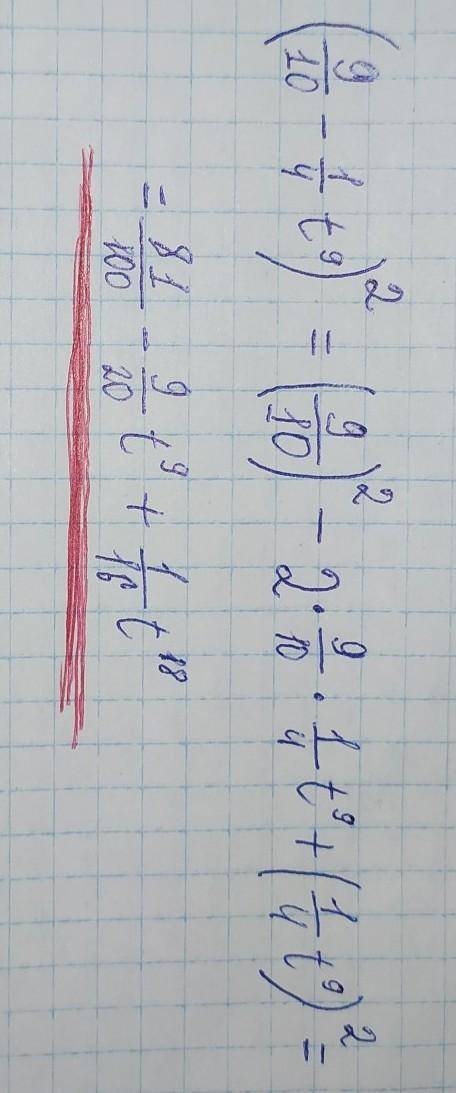 (9/10 - 1/4 t⁹)² = (9/10)² - 2 · 9/10 · 1/4 t⁹ + (1/4 t⁹)² =
= 81/100 - 9/20 t⁹ + 1/16 t¹⁸